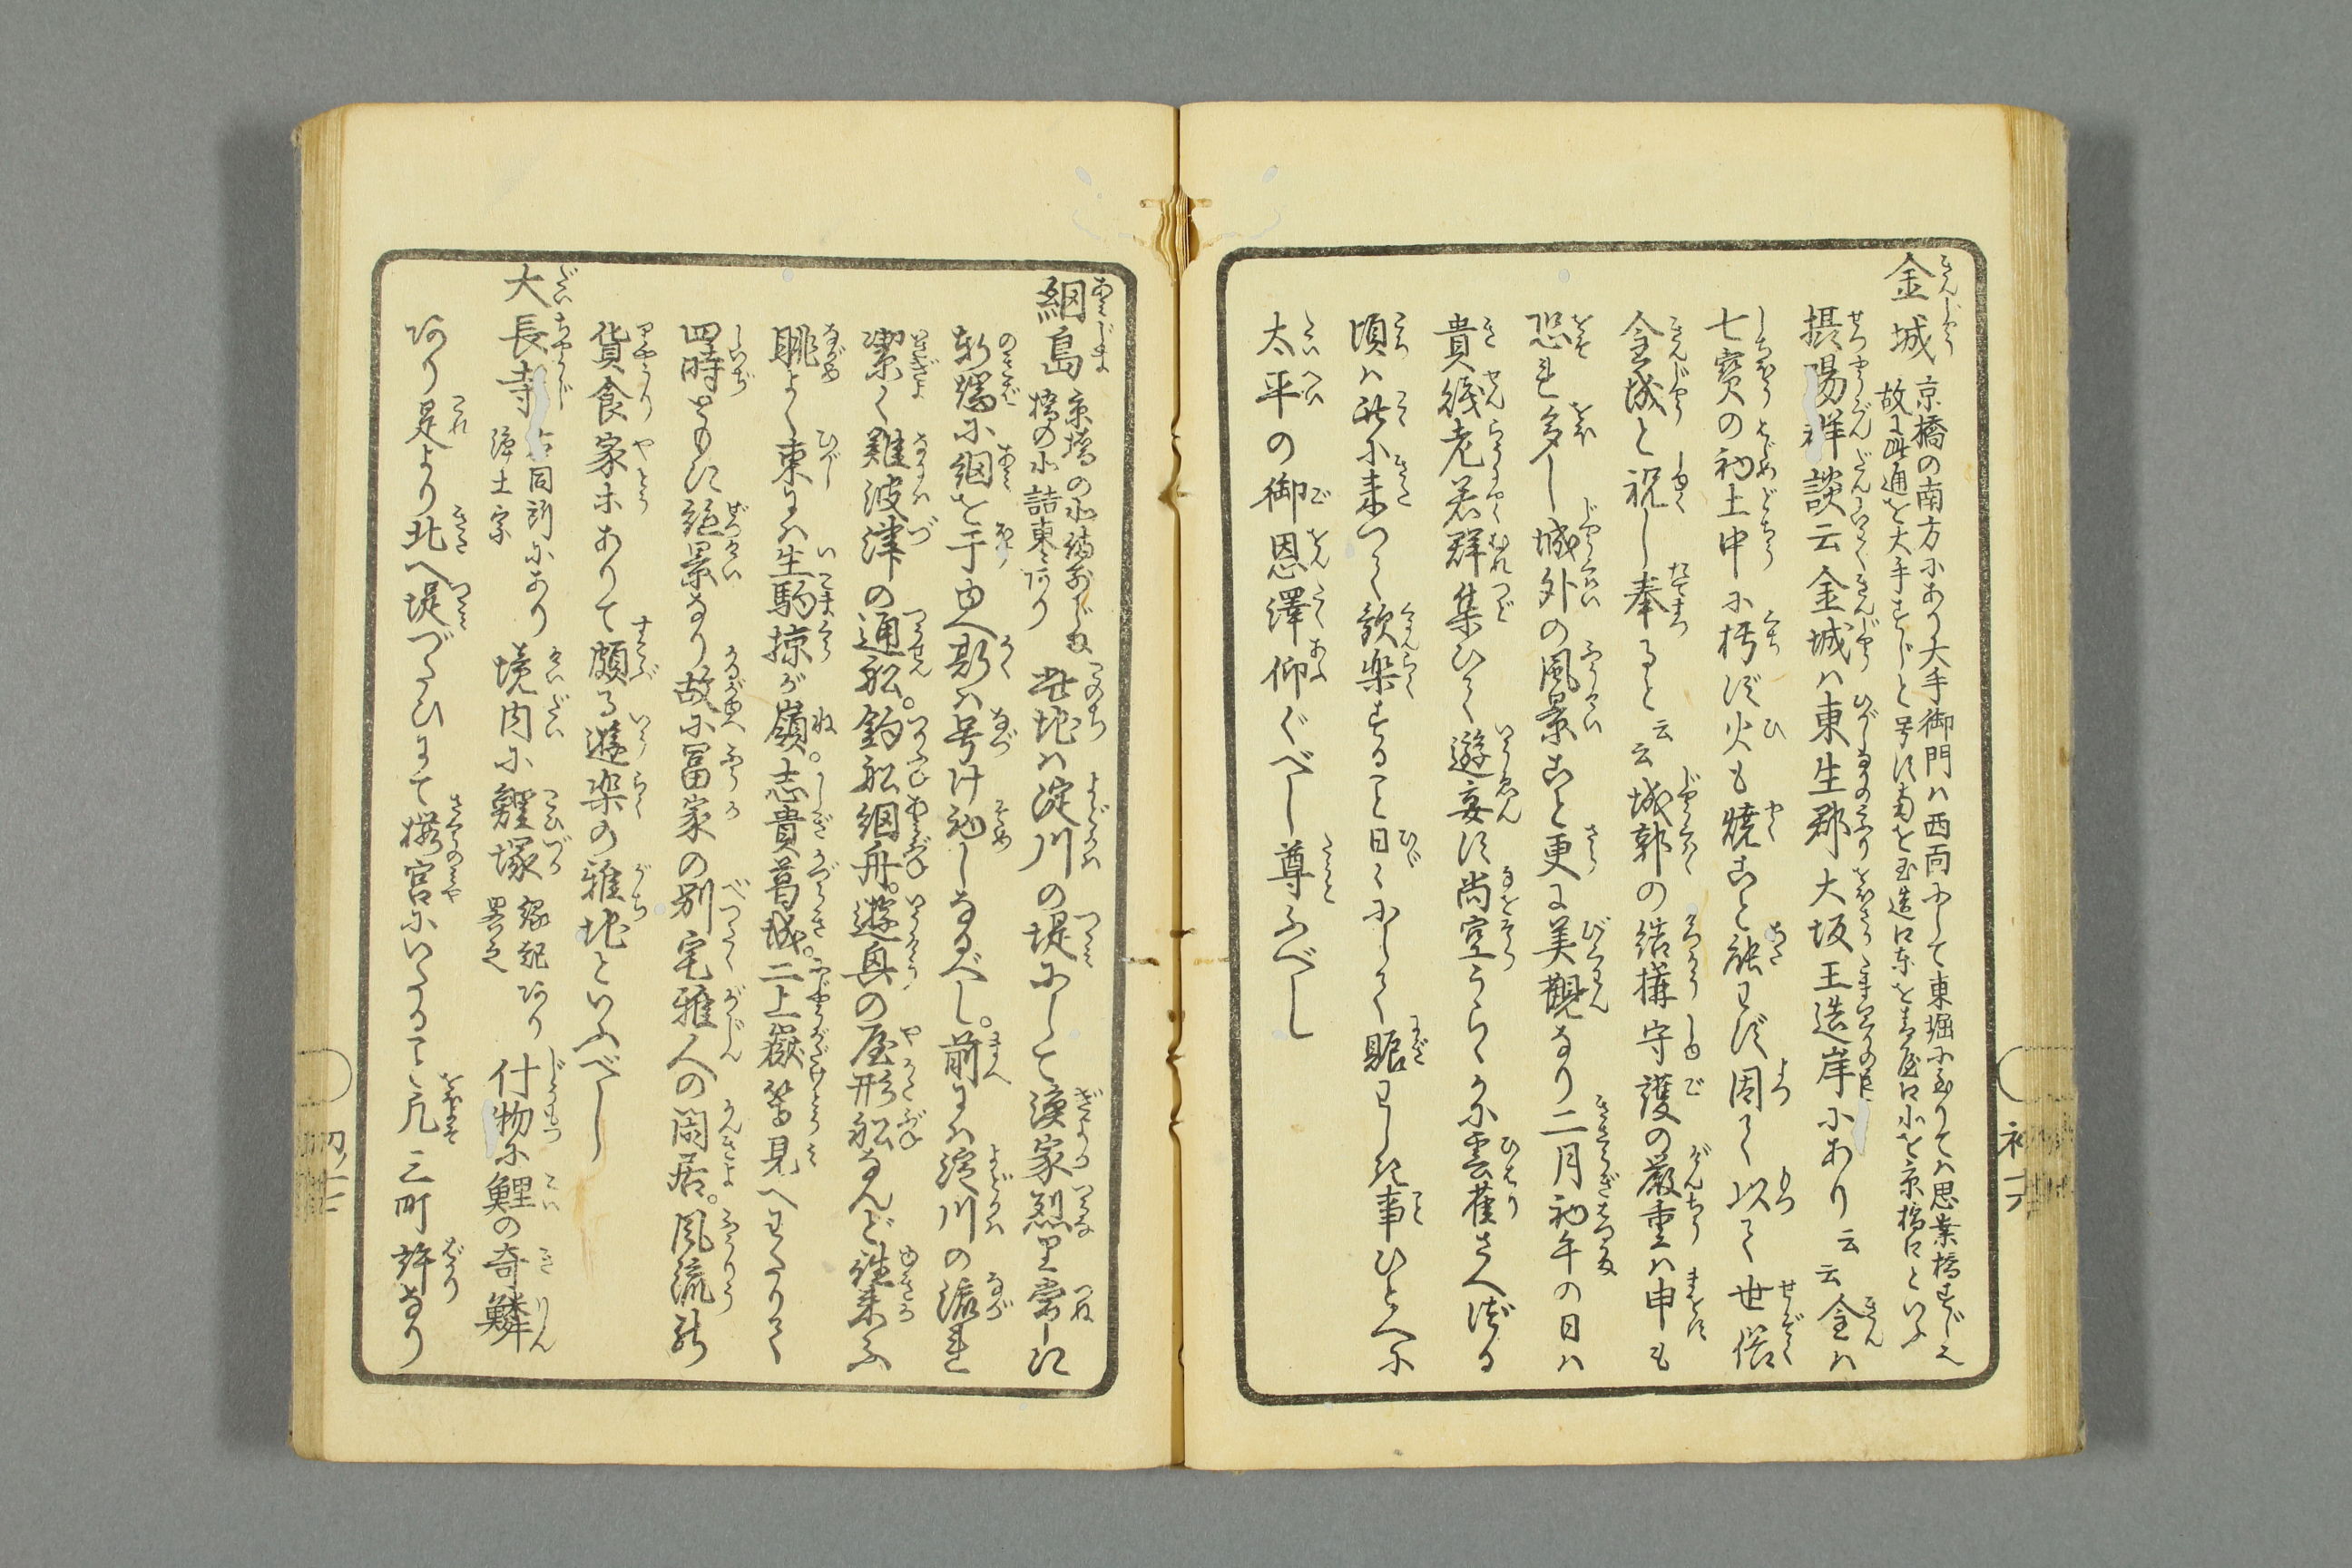 金城 京橋の南方にあり大手御門は西面にして東堀に至りては思案橋すじ也
故に此通を大手すじと号す南を玉造口東を青屋口北を京橋口といふ
摂陽群談云金城は東生郡大坂玉造岸にあり云云金は
七宝の初土中に朽ず火も焼こと能わず因て以て世俗
金城と祝し奉ると云云城郭の結構守護の厳重は申も
恐れ多し城外の風景こと更に美観なり二月初午の日は
貴賎老若群集ひて遊宴す尚空うらゝかに雲雀さへずる
頃は此に来つて歓楽すること日々にして賑わしき事ひとへに
太平の御恩澤仰ぐべし尊ふべし
初 十六
網島 京橋の北備前じま
橋の北詰東にあり 此地は淀川の堤にして漁家烈里常に
軒端に網を干ゆへ斯は号け初しなるべし。前には淀川の流れ
潔く難波津の通舩。釣舩網舟。遊興の屋形舩なんど往来ふ
眺よく東には生駒掠が嶺。志貴葛城。二上嶽等見へわたりて
四時ともに絶景なり故に冨家の別宅雅人の閑居。風流の
貨食家ホありて頗る遊楽の雅地といふべし
大長寺 右同所にあり
浄土宗 境内に鯉塚 縁記
畧之 あり 什物に鯉の奇鱗
あり是より北へ堤づたひにて櫻宮にいたること凡三町許なり